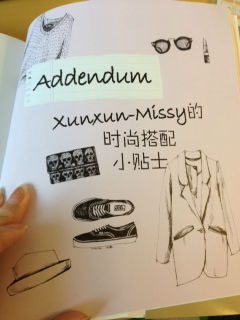 Addendum
Xunxun-Missy的
时尚搭配
小贴士